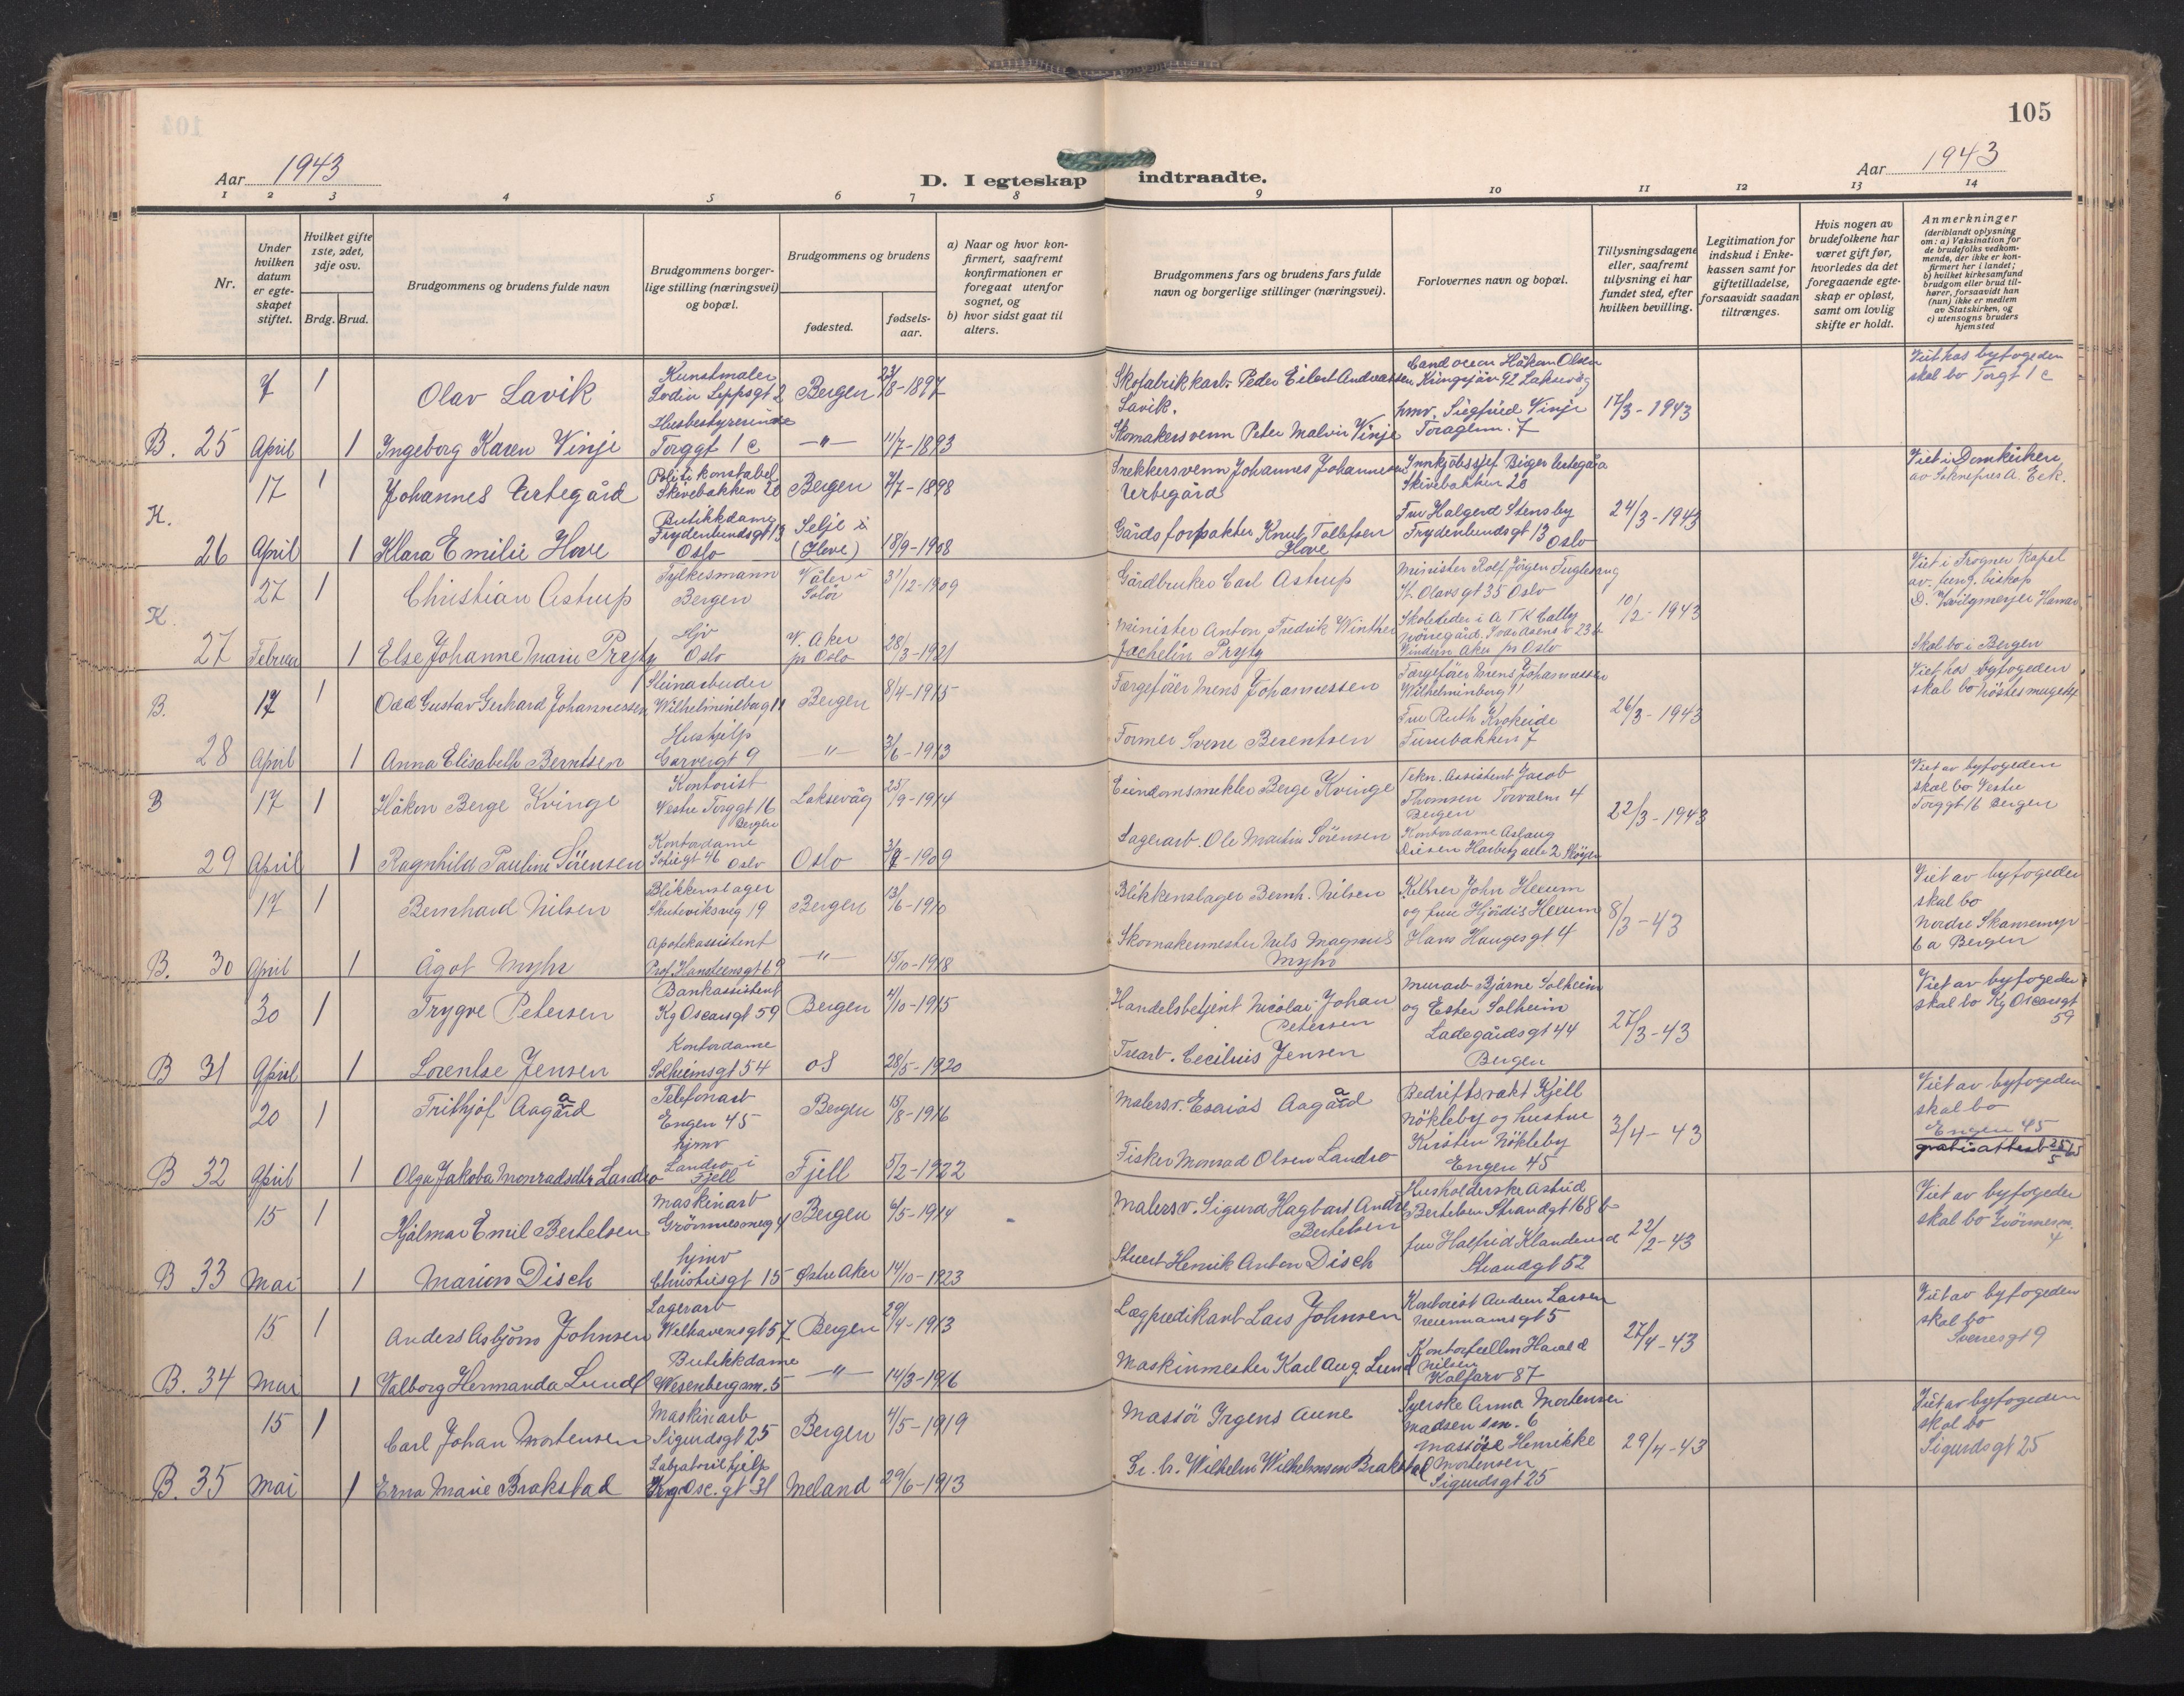 105
Aar 1943
D. I egteskap indtraadte.
Aar 1943
1 2 3 4 5 6 7 8 9 10 11 12 13 14
Nr.
Under hvilken datum er egteskapet stiftet.
Hvilket gifte 1ste, 2det, 3dje osv.
Brdg. Brud.
Brudgommens og brudens fulde navn
Brudgommens borgerlige stilling (næringsvei) og bopæl.
Brudgommens og brudens
fødested.
fødselsaar.
a) Naar og hvor konfirmert, saafremt konfirmationen er foregaat utenfor sognet, og
b) hvor sidst gaat til alters.
Brudgommens fars og brudens fars fulde navn og borgerlige stillinger (næringsvei).
Forlovernes navn og bopæl.
Tillysningsdagene eller, saafremt tillysning ei har fundet sted, efter hvilken bevilling.
Legitimation for indskud i Enkekassen samt for giftetilladelse, forsaavidt saadan tiltrænges.
Hvis nogen av brudefolkene har været gift før, hvorledes da det foregaaende egteskap er opløst, samt om lovlig skifte er holdt.
Anmerkninger
(deriblandt oplysning om: a) Vaksination for de brudefolks vedkommende, der ikke er konfirmert her i landet;
b) hvilket kirkesamfund brudgom eller brud tilhører, forsaavidt han (hun) ikke er medlem av Statskirken, og
c) utensogns bruders hjemsted
7 1 Olav Lavik Kunstmaler Lodin Leppsgt 2 Bergen 23/8-1897 Skofabrikkarb. Peder Eilert Andreassen Lavik. Cand oecon Håkon Olsen 92 Laksevåg 17/3-1943 Viet hos byfogeden skal bo Torgt 1 c
B. 25 April 1 Ingeborg Karen Vinje Husbestyrerinde Torggt 1 c -"- 11/7-1893 Skomakersvenn Peter Malvin Vinje hmv. Siegfried Vinje 7
17 Johannes Urtegård Politikonstabel Skivebakken 20 Bergen 7/7-1898 Snekkersvenn Johannes Johannesen Urtegård Innkjøbssjef Birger Urtegård Skivebakken 20 24/3-1943 Viet i Domkirken av Sokneprest A. Eek.
K. 26 April 1 Klara Emilie Hove Butikkdame Frydenlundsgt 13 Oslo Selje i (Hove) 18/9-1908 Gårdsforpakter Knut Tollefsen Hove Fru Halgerd Stensby Frydenlundsgt 13 Oslo
27 1 Christian Astrup Fylkesmann Bergen Våler i Solör 31/12-1909 Gårdbruker Carl Astrup Minister Rolf Jörgen Fuglesang St. Olavsgt 35 Oslo 10/2-1943 Viet i Frogner Kapel av fung. biskop Hamar
K. 27 Februar 1 Else Johanne Marie Pryty Hjv Oslo V. Aker pr Oslo 28/3-1921 Minister Anton Fredrik Winther Jachelin Pryty Vinderen Aker pr Oslo Skal bo i Bergen
17 1 Odd Gustav Gerhard Johannessen Steinarbeider Wilhelminborg 11 Bergen 8/4-1915 Færgefører Mens Johannessen Færgefører Mens Johannessen Wilhelminborg 11 26/3-1943 Viet hos byfogeden skal bo
B. 28 April 1 Anna Elisabeth Berntsen Hushjelp 9 -"- 3/6-1913 Former Svene Berentsen Fru Ruth Krokeide Furubakken 7
B 17 1 Håkon Berge Kvinge Kontorist Vestre Torggt 16 Bergen Laksevåg 25/9-1914 Eiendomsmekler Berge Kvinge Tekn. Assistent Jacob Thomsen Torvalm 4 Bergen 22/3-1943 Viet av byfogeden skal bo Vestre Torggt 16 Bergen
29 April 1 Ragnhild Pauline Sörensen Kontordame Sofiegt 46 Oslo Oslo -1909 Lagerarb. Ole Martin Sörensen Kontordame Aslaug
17 1 Bernhard Nilsen Blikkenslager Skuteviksveg 19 Bergen 13/6-1910 Blikkenslager Bernh. Nilsen Kelner John Heeum og fru Hjördis Heeum Hans Haugesgt 4 8/3-43 Viet av byfogeden skal bo Nordre Skansemyr 6 a Bergen
B. 30 April 1 Ågot Myhr Apotekassistent Prof. Hansteensgt 69 -"- 15/10-1918 Skomakermester Nils Magnus Myhr
30 1 Trygve Petersen Bankassistent Kg Oscarsgt 59 Bergen 4/10-1915 Handelsbetjent Nicolai Johan Petersen Murarb Bjarne Solheim og Ester Solheim Ladegårdsgt 44 Bergen 27/3-43 Viet av byfogeden skal bo Kg Oscarsgt 59
B 31 April 1 Lorentse Jensen Kontordame Solheimsgt 54 os 28/5-1920 Trearb. Cecilius Jensen
20 1 Frithjof Aagård Telefonarb Engen 45 Bergen 15/8-1916 Malersv. Esaias Aagård Bedriftsvakt Kjell Nökleby og hustru Kirsten Nökleby Engen 45 3/4-43 Viet av byfogeden skal bo Engen 45
gratisattest
B 32 April 1 Olga Jakoba Monradsdtr Landro hjmv Landro i Fjell Fjell 5/2-1922 Fisker Monrad Olsen Landro
15 1 Hjalmar Emil Bertelsen Maskinarb 4 Bergen 6/5-1914 Malersv. Sigurd Hagbart Andre Bertelsen Husholderske Astrid Bertelsen Strandgt 168 b 22/2-43 Viet av byfogeden skal bo 4
B 33 Mai 1 Marion Disch hjmv Christiesgt 15 Østre Aker 14/10-1923 Stuert Henrik Anton Disch fru Halfrid Klanderud Strandgt 52
15 1 Anders Asbjörn Johnsen Lagerarb Welhavensgt 57 Bergen 29/4-1913 Lægpredikant Lars Johnsen Kontorist Andrea Larsen Neumannsgt 5 27/4-43 Viet av byfogeden skal bo Sverresgt 9
B. 34 Mai 1 Valborg Hermanda Lund Butikkdame Wesenbergsm. 5 -"- 14/3-1916 Maskinmester Karl Aug. Lund Harald Nilsen Kalfarv 87
15 1 Carl Johan Mortensen Maskinarb Sigurdsgt 25 Bergen 4/5-1919 Massör Irgens Aune Syerske Anna Mortensen Madsen sm. 6 29/4-43 Viet av byfogeden skal bo Sigurdsgt 25
B. 35 Mai 1 Erna Marie Brakstad Laboratoriehjelp Kong Osc. gt 31 Meland 29/6-1913 Gr. br. Wilhelm Wilhelmsen Brakstad Massöse Henrikke Mortensen Sigurdsgt 25